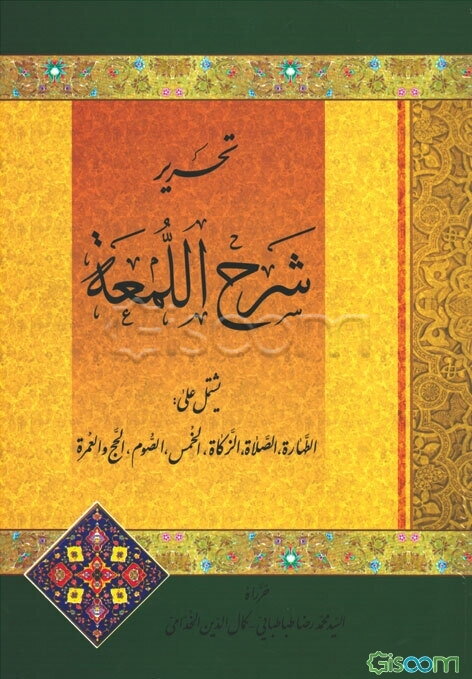 تحرير
شرح اللُّمعَة
يشتمل على:
الطهارة، الصلاة، الزكاة، الخمس، الصوم، الحج والعمرة
حرراه
السيد محمد رضا طباطبائي - كمال الدين
Gisoom
Gisoom